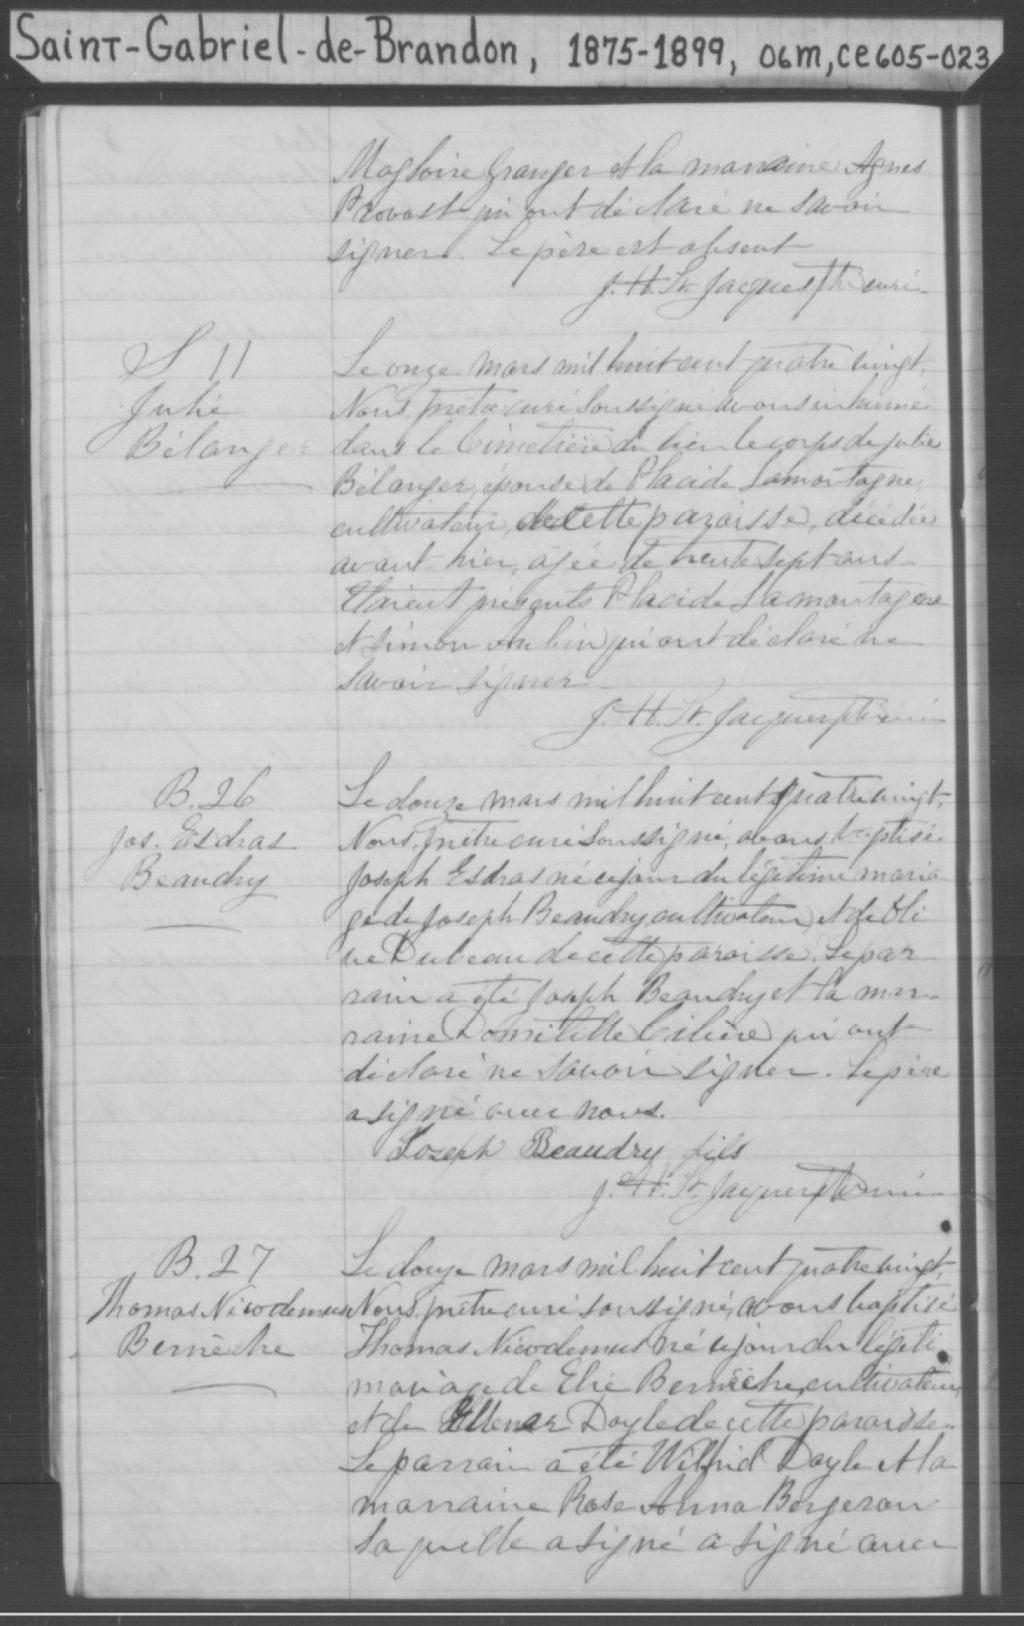 Saint-Gabriel-de-Brandon, 1875-1899, 06m, ce605-023
Magloire Granger et la marraine Agnes
Provost qui ont déclaré ne savoir
signer. Le père est absent
J. H. St. Jacques Ptre curé
S 11
Julie
Bélanger
Le onze mars mil huit cent quatre vingt,
Nous, prêtre curé soussigné avons inhumé
dans le Cimetière du lieu le corps de Julie
Bélanger, épouse de Placide Lamontagne,
cultivateur, de cette paroisse, décédée
avant hier, agée de trente sept ans
Etaient présents Placide Lamontagne
et Simon Aubin qui ont déclaré ne
savoir signer
J. H. St. Jacques Ptre curé
B. 26
Jos. Esdras
Beaudry
Le douze mars mil huit cent quatre vingt,
Nous, prêtre curé soussigné, avons baptisé
Joseph Esdras né ce jour du légitime maria
ge de Joseph Beaudry, cultivateur et de Oli
ve Dubeau de cette paroisse. Le par
rain a été Joseph Beaudry et la mar-
raine Domitille qui ont
déclaré ne savoir signer. Le père
a signé avec nous.
Joseph Beaudry fils
J. H. St. Jacques Ptre curé
B. 27
Thomas Nicodemus
Bernèche
Le douze mars mil huit cent quatre vingt,
Nous, prêtre curé soussigné, avons baptisé
Thomas Nicodemus né ce jour du légiti
mariage de Elie Bernèche, cultivateur,
et de Doyle de cette paroisse.
Le parrain a été Wilfrid Doyle et la
marraine Rose Anna Bergeron
laquelle a signé a signé avec